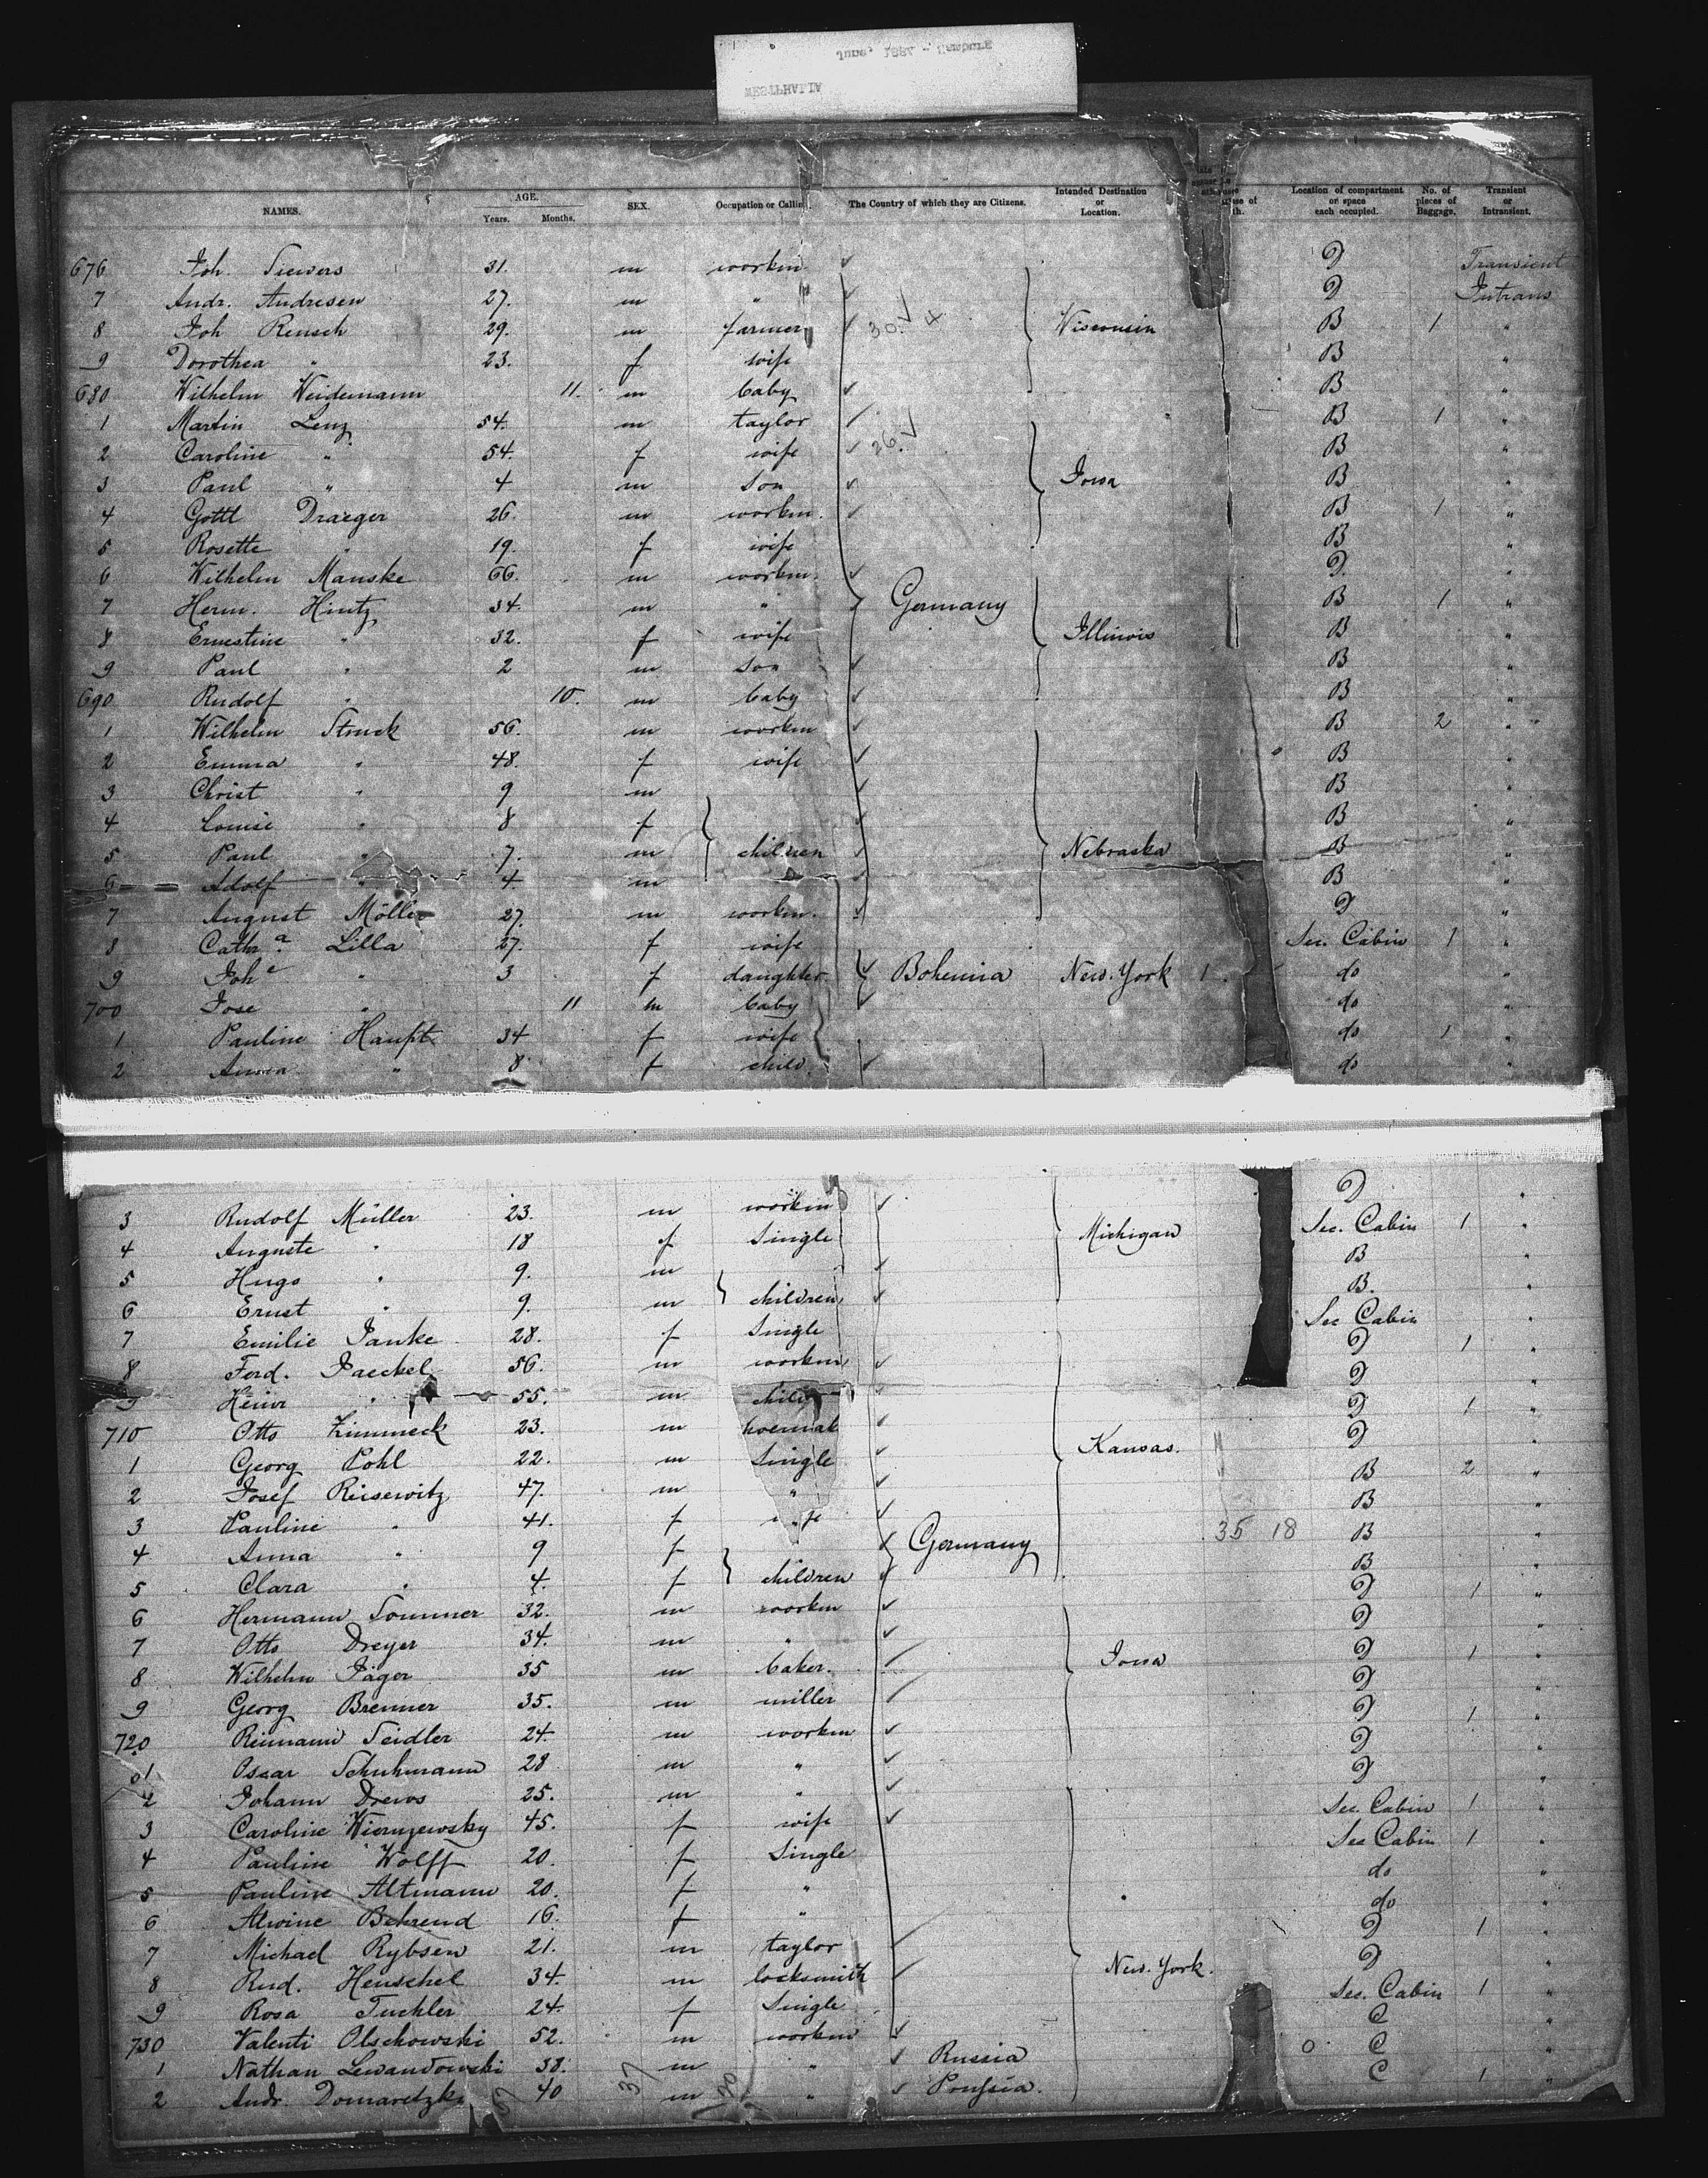 WESTPHALIA
June, 1887 - Hamburg
NAMES. AGE. Years. Months. SEX. Occupation or Calling. The Country of which they are Citizens. Intended Destination or Location. Location of compartment or space each occupied. No. of pieces of Baggage. Transient or Intransient.
676 Joh. Siewers 31. m workm D Transient
7 Andr. Andresen 27. m " D Intrans
8 Joh Rensch 29. m farmer 30. 4 Wisconsin B 1 "
9 Dorothea " 23. f wife B "
680 Wilhelm Weidemann 11. m baby B "
1 Martin Lenz 54. m taylor B 1 "
2 Caroline " 54. f wife 26. B "
3 Paul " 4 m son Iowa B "
4 Gottl Draeger 26. m workm. B 1 "
5 Rosette " 19. f wife B "
6 Wilhelm Manske 66. m workm. D "
7 Herm. Hintz 34. m " Germany B 1 "
8 Ernestine " 32. f wife Illinois B "
9 Paul " 2 m son B "
690 Rudolf " 10. m baby B "
1 Wilhelm Struck 56. m workm B 2 "
2 Emma " 48. f wife B "
3 Christ " 9 m B "
4 Louise " 8 f B "
5 Paul " 7. m children Nebraska B "
6 Adolf " 4. m B "
7 August Möller 27. m workm. D "
8 Cathra Lilla 27. f wife Sec. Cabin 1 "
9 Johe " 3 f daughter Bohemia New. York 1. do "
700 Jose " 11 m baby do "
1 Pauline Haupt 34 f wife do 1 "
2 Anna " 8 f child do "
3 Rudolf Müller 23. m workm D "
4 Auguste " 18 f Single Michigan Sec. Cabin 1 "
5 Hugo " 9. m B "
6 Ernst " 9. m children B. "
7 Emilie Janke 28. f Single Sec Cabin "
8 Ferd. Jaeckel 56. m workm D 1 "
9 Heinr " 55. m child D "
710 Otto Zimmeck 23. m D 1 "
1 Georg Pohl 22. m Single Kansas. D "
2 Josef Reisewitz 47. m " B 2 "
3 Pauline " 41. f wife 35 18 B "
4 Anna " 9 f Germany B "
5 Clara " 4. f children B "
6 Hermann Sommer 32. m workm D 1 "
7 Otto Dreyer 34. m " D "
8 Wilhelm Jäger 35 m baker. Iowa D 1 "
9 Georg Brenner 35. m miller D "
720 Reimann Seidler 24. m workm D 1 "
1 Oscar Schuhmann 28 m " D "
2 Johann Drews 25. m " D "
3 Caroline Wiernzewsky 45. f wife Sec. Cabin 1 "
4 Pauline Wolff 20. f Single Sec Cabin 1 "
5 Pauline Altmann 20. f " do "
6 Alwine Behrend 16. f " do "
7 Michael Rybsen 21. m taylor D 1 "
8 Rud. Henschel 34. m locksmith New. York. D "
9 Rosa Tuchler 24. f Single Sec. Cabin 1 "
730 Valenti Olschowski 52. m workm C "
1 Nathan Lewandowski 38. m " Russia 0 C "
2 Andr. Domaretzki 40 m " Prussia. C 1 "
37